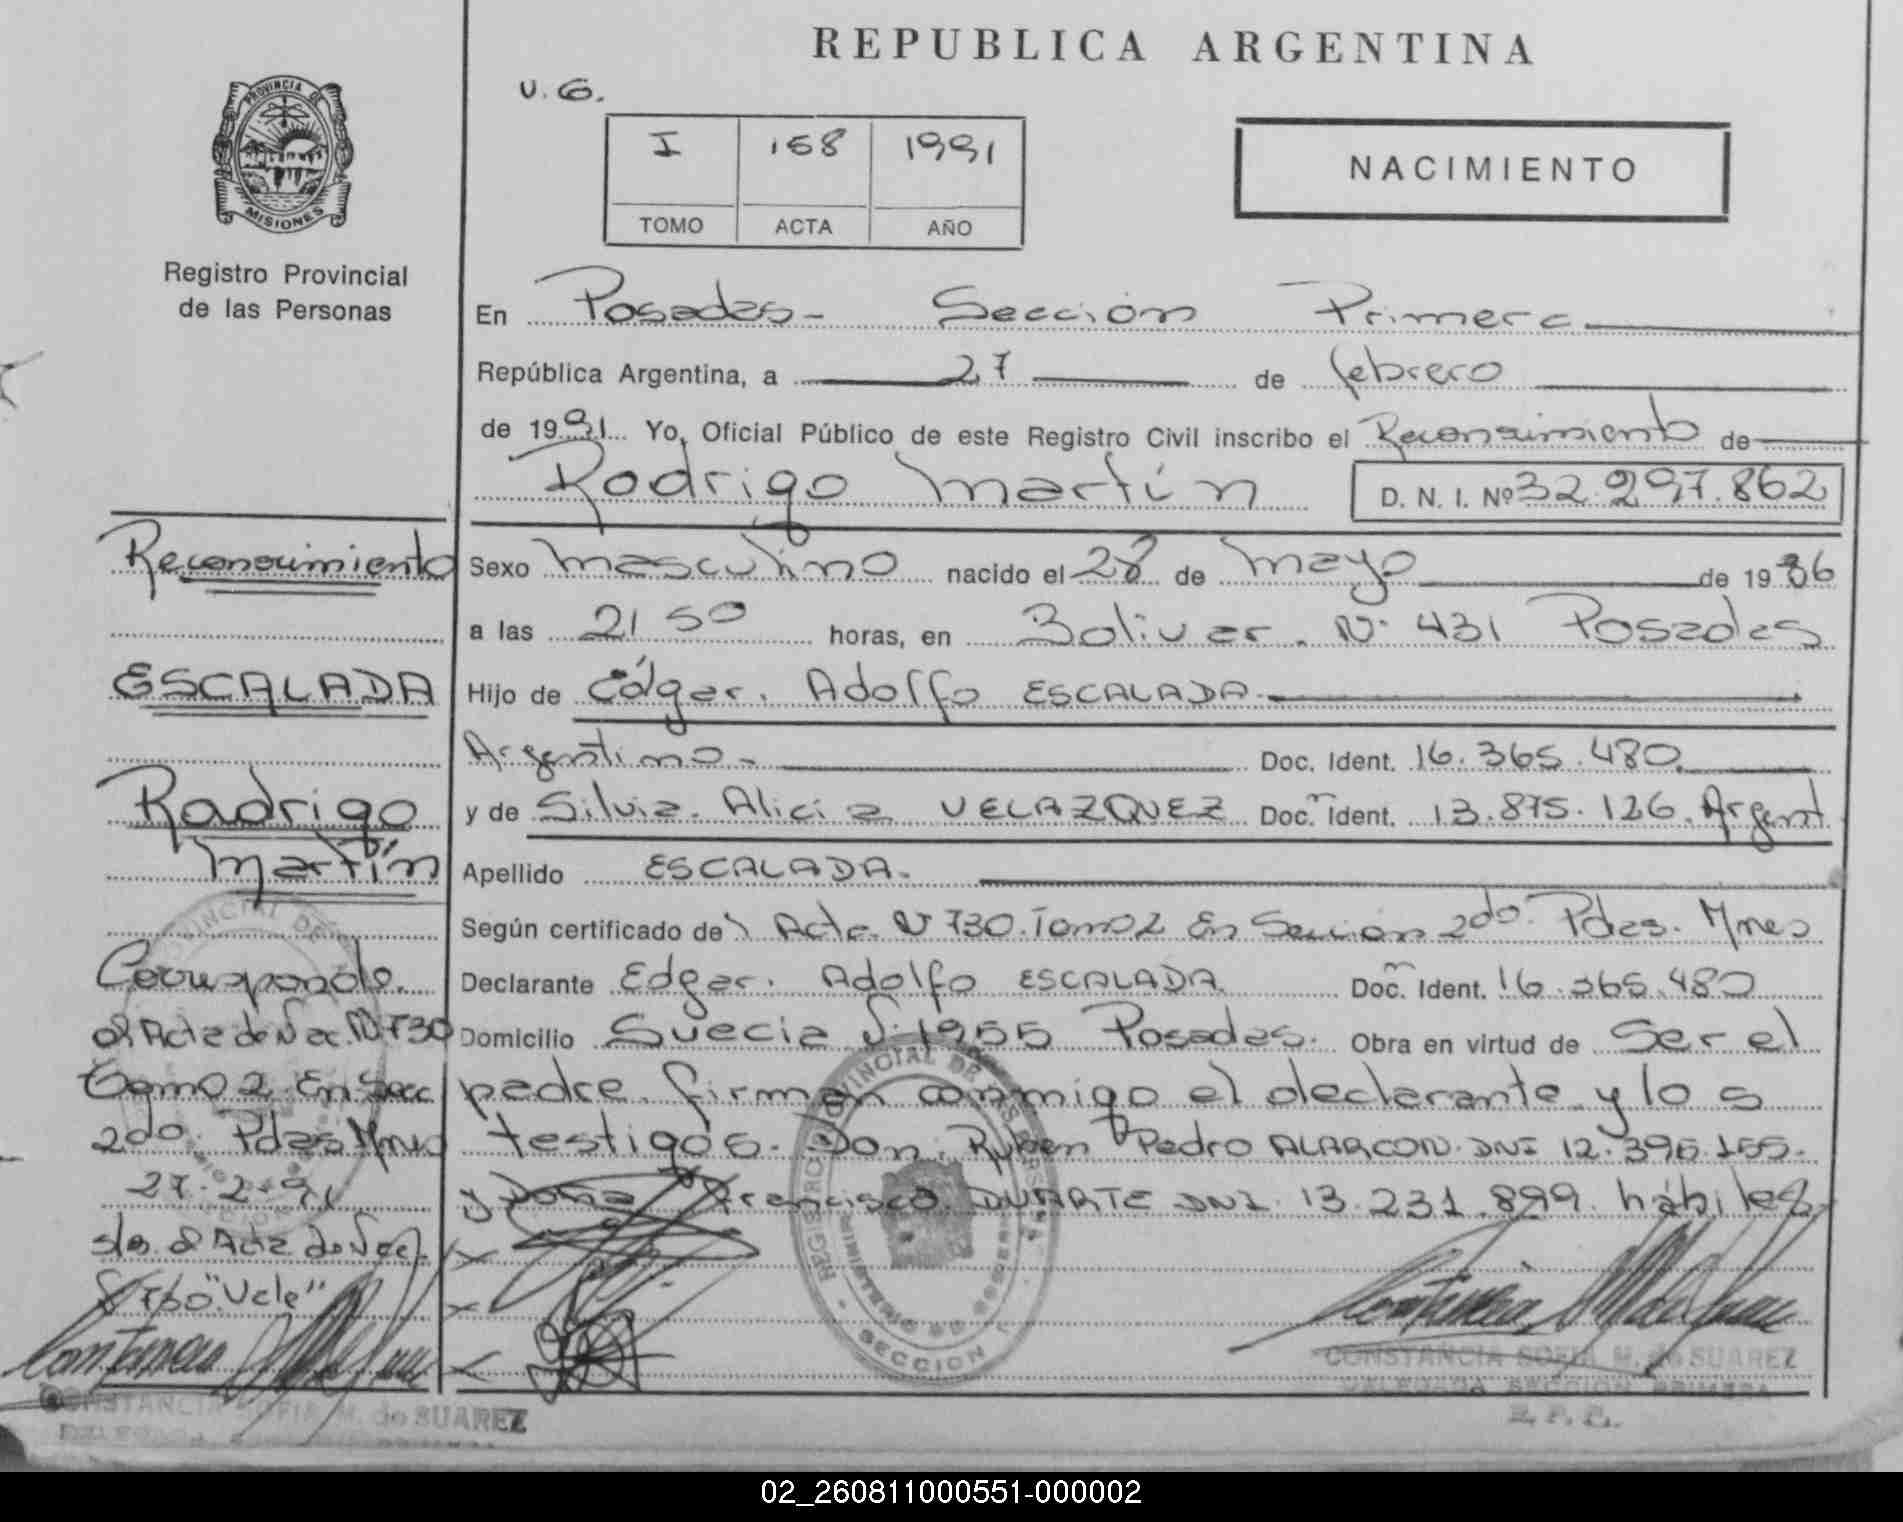 REPUBLICA ARGENTINA
U. G.
I 168 1991
TOMO ACTA AÑO
NACIMIENTO
PROVINCIA DE
MISIONES
Registro Provincial
de las Personas
En Posadas - Sección Primera
República Argentina, a 27 de febrero
de 1991 Yo, Oficial Público de este Registro Civil inscribo el Reconosimiento de
Rodrigo Martín D. N. I. Nº 32.297.862
Sexo Masculino nacido el 28 de Mayo de 1986
a las 21 50 horas, en Bolivar. Nº 431 Posadas
Hijo de Edgar. Adolfo ESCALADA
Argentino - Doc. Ident. 16.365.480
y de Silvia. Alicia VELAZQUEZ Doc. Ident. 13.875.126. Argent
Apellido ESCALADA.
Según certificado de Acta Nº 730. Tomo 2 En Seccion 2do. Pdas. Mnes
Declarante Edgar. Adolfo ESCALADA Doc. Ident. 16.365.480
Domicilio Suecia Nº 1955 Posadas. Obra en virtud de Ser el
padre. firman conmigo el declarante y lo s
testigos. Don. Ruben Pedro ALARCON. DNI 12.396.155.
y Doña Francisca DUARTE DNI. 13.231.899. hábiles
Reconosimiento
ESCALADA
Rodrigo
Martín
Corresponde.
al Acta de Nac. Nº 730
Tomo 2 En Secc
2do. Pdas Mnes
27-2-91
al Acta de Nac.
"Vale"
REGISTRO PROVINCIAL DE LAS PERSONAS
MINISTERIO DE GOBIERNO
SECCION
CONSTANCIA SOFIA M. de SUAREZ
DELEGADA SECCION PRIMERA
R. P. P.
CONSTANCIA SOFIA M. de SUAREZ
02_260811000551-000002